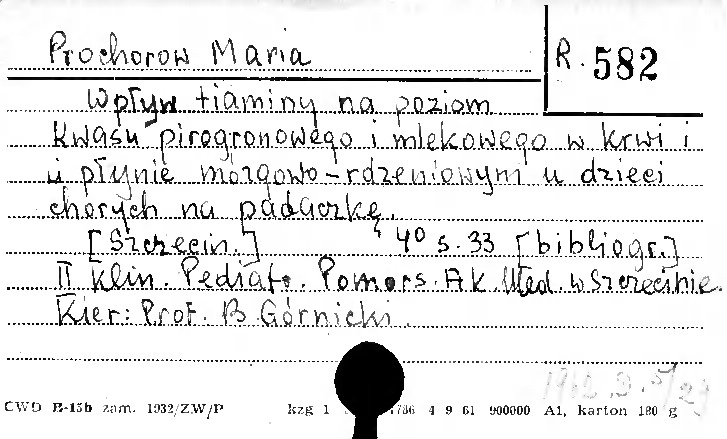 Prochorow Maria
R. 582
Wpływ tiaminy na poziom
kwasu pirogronowego i mlekowego w krwi i
u płynie mózgowo-rdzeniowym u dzieci
chorych na padaczkę.
[Szczecin.] 4° s. 33 [bibliogr.]
II Klin. Pediatr. Pomors. Ak. Med. w Szczecinie.
Kier: Prof. B Górnicki.
CWD B-15b zam. 1932/ZW/P kzg 1 1786 4 9 61 900000 A1, karton 180 g